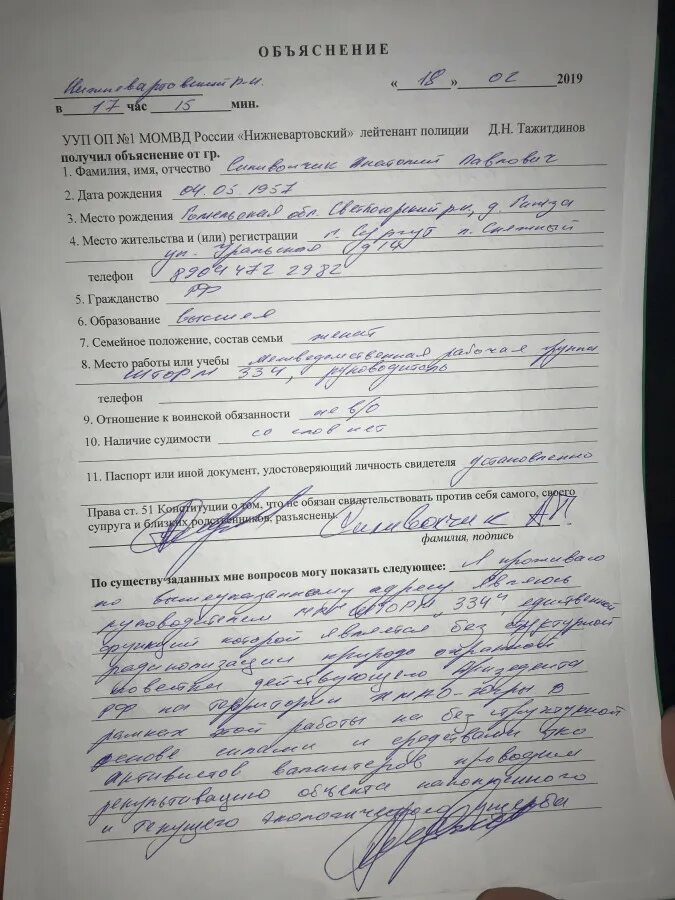 ОБЪЯСНЕНИЕ
Нижневартовский р-н. « 18 » 02 2019
в 17 час 15 мин.
УУП ОП №1 МОМВД России «Нижневартовский» лейтенант полиции Д.Н. Тажитдинов
получил объяснение от гр.
1. Фамилия, имя, отчество Сливончик Анатолий Павлович
2. Дата рождения 04.05.1957
3. Место рождения Гомельская обл. Светлогорский р-н, д.
4. Место жительства и (или) регистрации г. Сургут п. Снежный
ул. Уральская д 14
телефон 8904 472 2982
5. Гражданство РФ
6. Образование высшее
7. Семейное положение, состав семьи женат
8. Место работы или учебы Межведомственная рабочая группа
ШТОРМ 334, руководитель
телефон
9. Отношение к воинской обязанности не в/о
10. Наличие судимости со слов нет
11. Паспорт или иной документ, удостоверяющий личность свидетеля установлено
Права ст. 51 Конституции о том, что не обязан свидетельствовать против себя самого, своего
супруга и близких родственников, разъяснены Сливончик АП.
фамилия, подпись
По существу заданных мне вопросов могу показать следующее: Я проживаю
по вышеуказанному адресу. Являюсь
руководителем "ШТОРМ 334", единственной
функцией которой является без структурной
природо охранной
повестки действующего Президента
РФ на территории ХМАО-Югры. В
рамках этой работы на без структурной
основе силами и средствами эко
активистов валантеров проводим
рекультивацию объекта накопленного
и текущего экологического ущерба